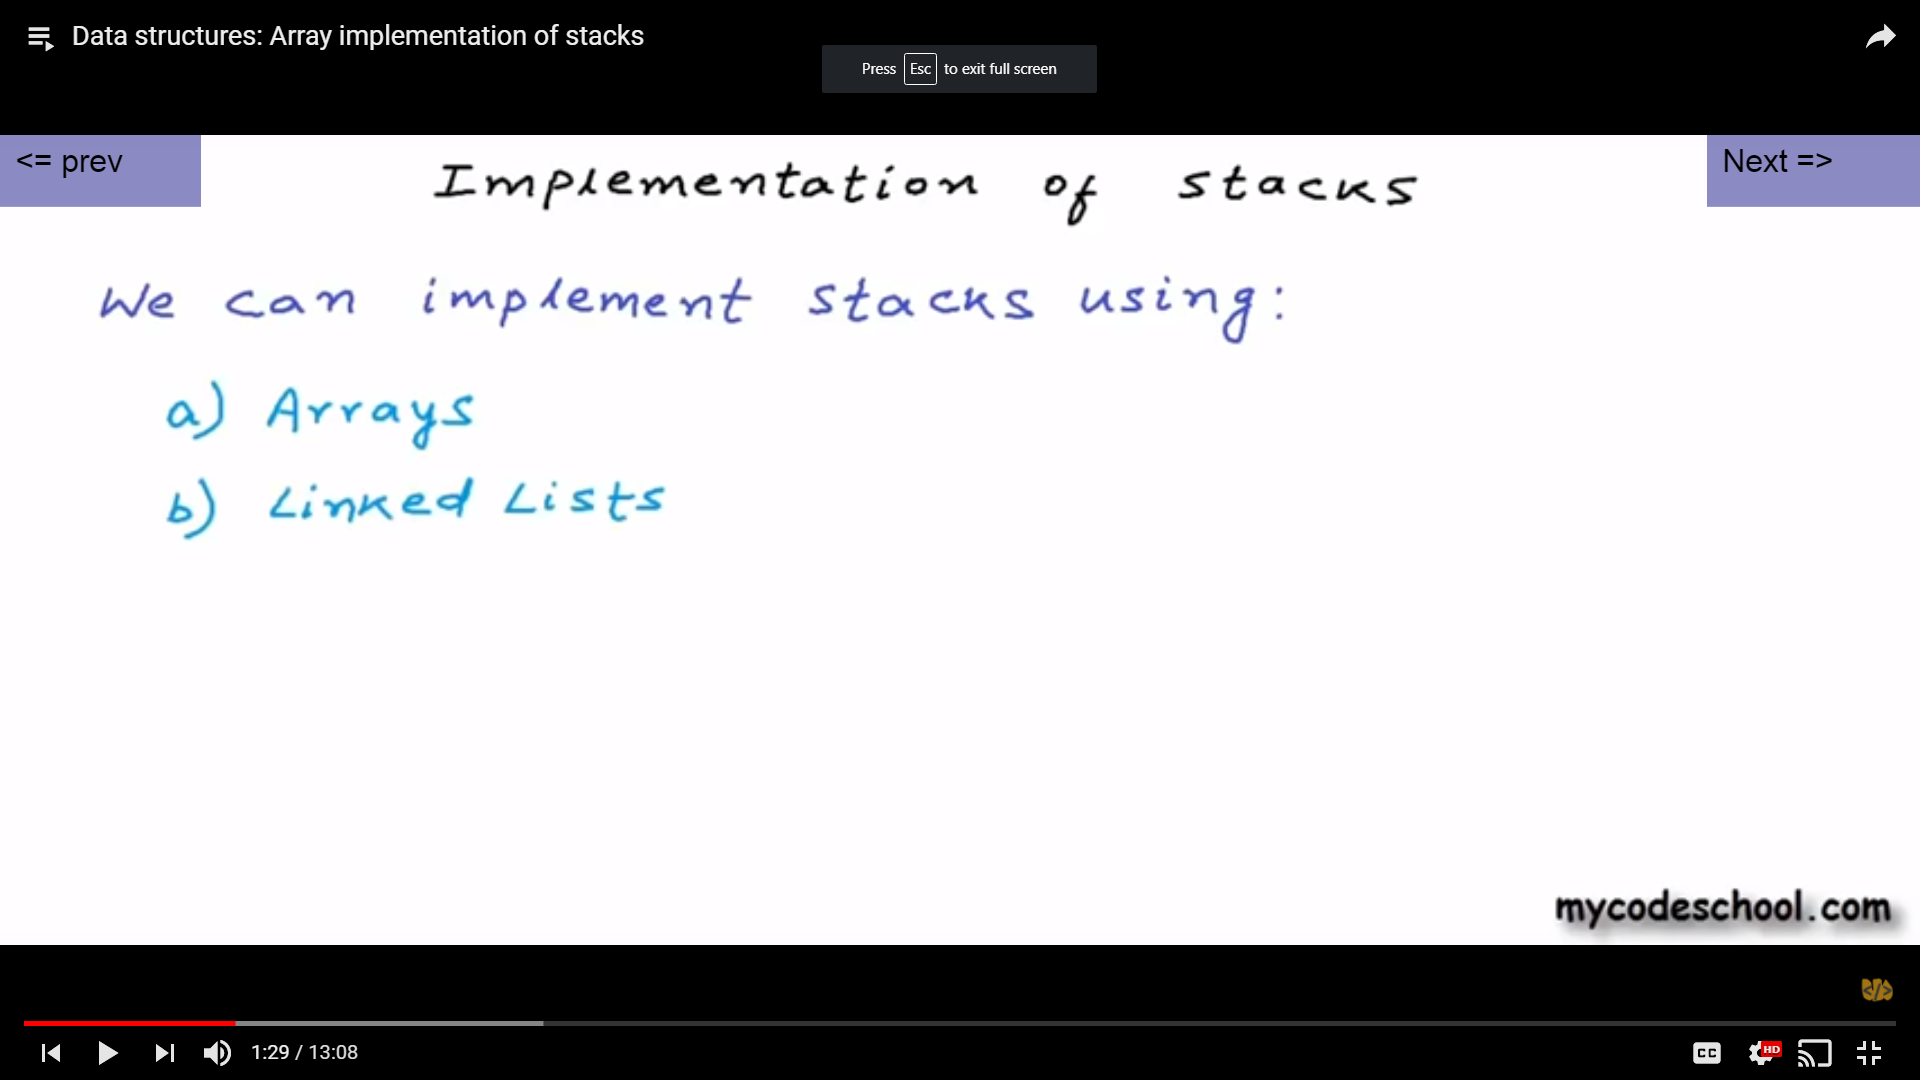 Data structures: Array implementation of stacks
Press Esc to exit full screen
<= prev
Next =>
Implementation of stacks
We can implement stacks using:
a) Arrays
b) Linked Lists
mycodeschool.com
</>
1:29 / 13:08
CC
HD